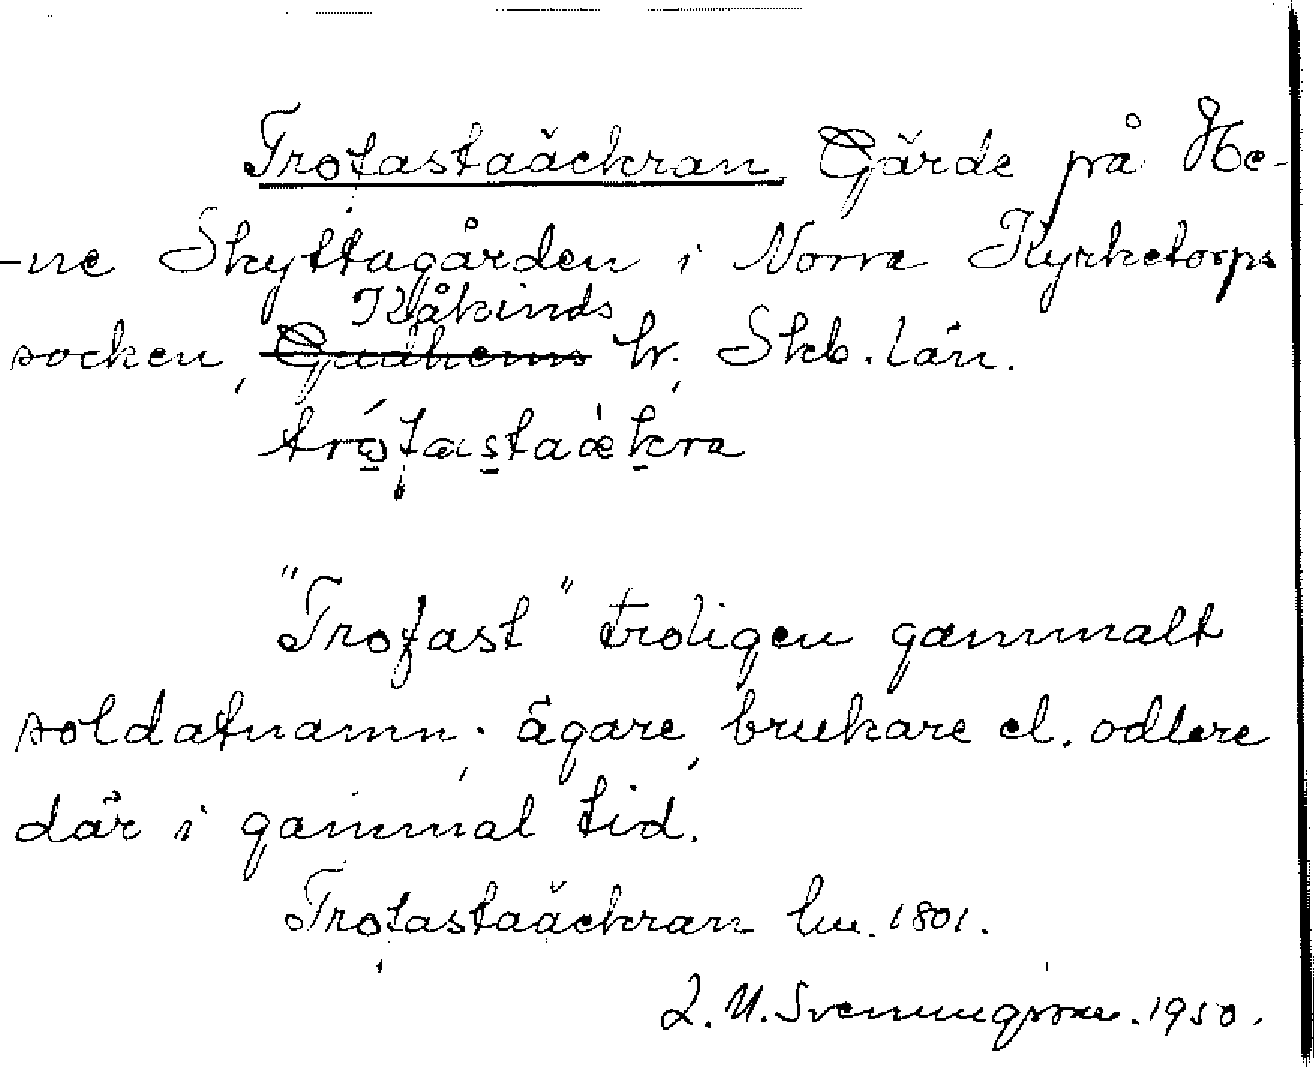 Trofastaäckran Gärde på He-
-ne Skyttagården i Norra Kyrketorps
Kåkinds
socken, Gudhems hr, Skb. län.
trófastaækra
"Trofast" troligen gammalt
soldatnamn; ägare, brukare el. odlare
där i gammal tid.
Trofastaäckran lm. 1801.
L. M. Svenungsson. 1950.